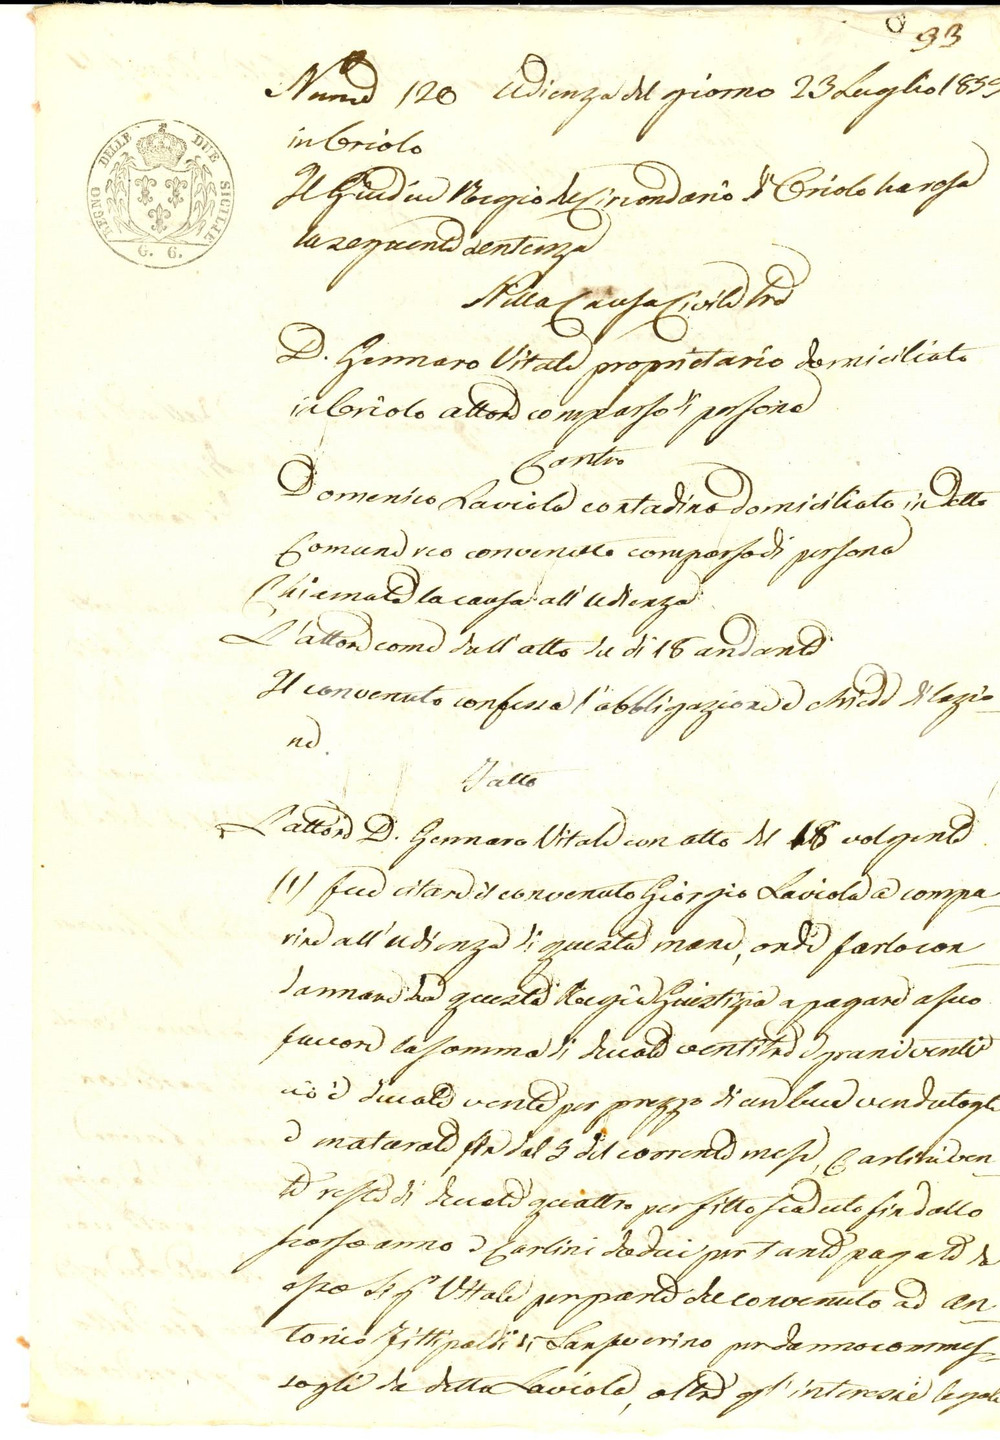 93
Num.o 120 Udienza del giorno 23 Luglio 183
in Oriolo
Il Giudice Regio del Circondario di Oriolo ha resa
la seguente sentenza
Nella Causa Civile tra
D. Gennaro Vitale proprietario domiciliato
in Oriolo attore comparso di persona
Contro
Domenico Laviola contadino domiciliato in detto
Comune reo convenuto comparso di persona
Chiamata la causa all'udienza
L'attore come dall'atto de di 18 andante
Il convenuto confessa l'obbligazione e chiede dilazio-
ne.
Fatto
L'attore D. Gennaro Vitale con atto del 18 volgente
(1) fece citare il convenuto Giorgio Laviola a compa-
rire all'udienza di questa mane, onde farlo con-
dannare da questa Regia Giustizia a pagare a suo
favore la somma di ducati ventitre e grani venti
cioè ducati venti per prezzo di un bue vendutogli
e maturato fin dal 5 del corrente mese, Carlini ven-
ti resta di ducati quattro per fitto scaduto fin dallo
scorso anno e Carlini dodici per tanti pagati da
esso Sig.r Vitale per parte del convenuto ad An-
tonio Fittipaldi di Sanseverino per danno commes-
sogli da detto Laviola, oltre gl'interessi legali
REGNO DELLE DUE SICILIE
G. G.